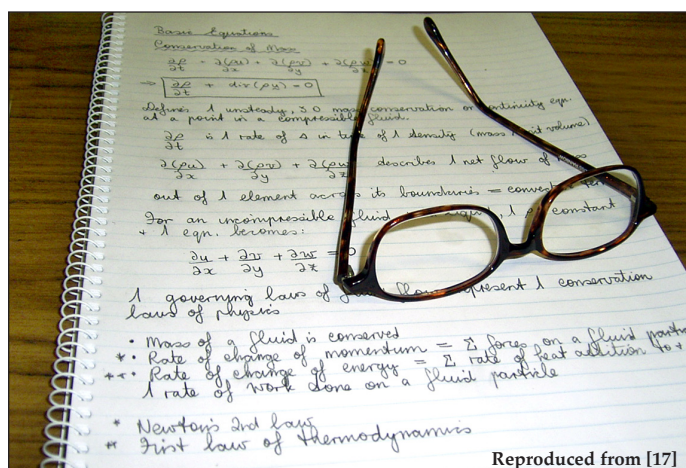 Basic Equations
Conservation of Mass
∂ρ/∂t + ∂(ρu)/∂x + ∂(ρv)/∂y + ∂(ρw)/∂z = 0
⇒ ∂ρ/∂t + div(ρu) = 0
Defines 1 unsteady, 3D mass conservation or continuity eqn.
at a point in a compressible fluid.
∂ρ/∂t is 1 rate of Δ in time of 1 density (mass / unit volume)
∂(ρu)/∂x + ∂(ρv)/∂y + ∂(ρw)/∂z describes 1 net flow of mass
out of 1 element across its boundaries =
For an incompressible fluid 1 ρ constant
+ 1 eqn. becomes:
∂u/∂x + ∂v/∂y + ∂w/∂z = 0
1 governing laws of represent 1 conservation
laws of physics
• Mass of a fluid is conserved
* • Rate of change of momentum = Σ forces on a fluid
** • Rate of change of energy = Σ rate of heat addition to +
1 rate of work done on a fluid particle
* Newton's 2nd law
** First law of thermodynamics
Reproduced from [17]